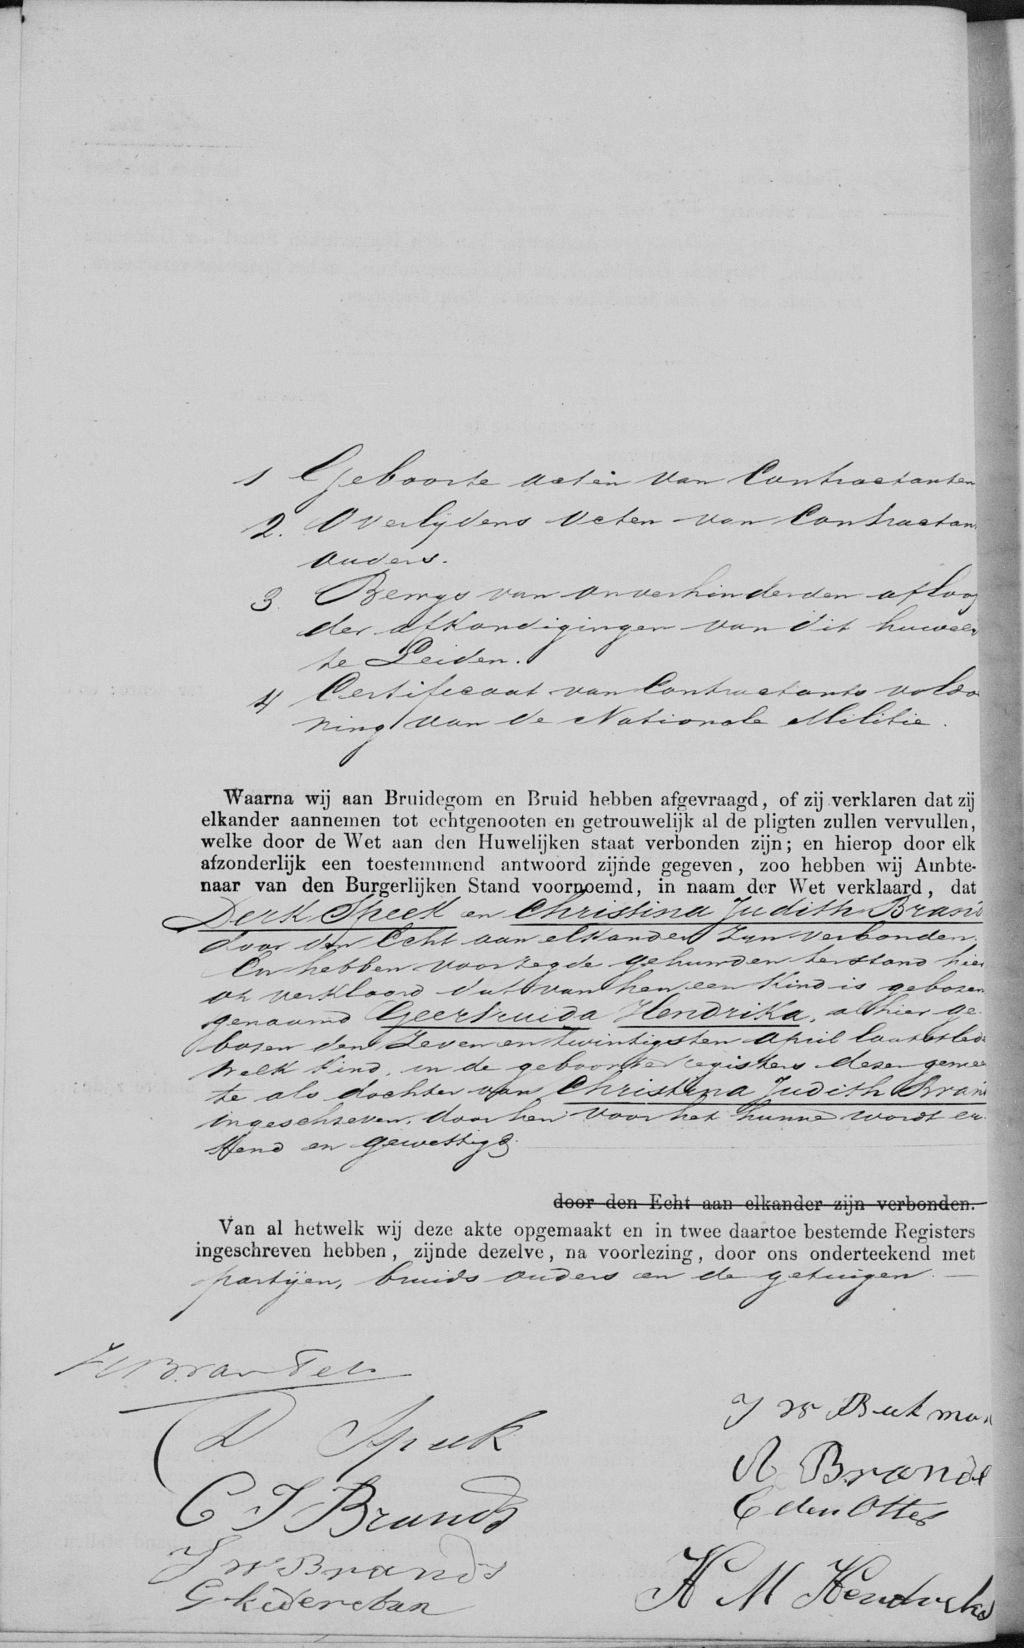 1 Geboorte acten van Contractanten
2. Overlijdens acten van Contractan
ouders.
3 Bewys van onverhinderden afloop
der afkondigingen van dit huwel
te Leiden.
4 Certificaat van Contractants voldoe
ning van de Nationale Militie.
Waarna wij aan Bruidegom en Bruid hebben afgevraagd, of zij verklaren dat zij
elkander aannemen tot echtgenooten en getrouwelijk al de pligten zullen vervullen,
welke door de Wet aan den Huwelijken staat verbonden zijn; en hierop door elk
afzonderlijk een toestemmend antwoord zijnde gegeven, zoo hebben wij Ambte-
naar van den Burgerlijken Stand voornoemd, in naam der Wet verklaard, dat
Derk Speek en Christina Judith Brand
door den Echt aan elkander zyn verbonden.
En hebben voorzegde gehuwden terstond hier
op verklaard dat van hen een kind is geboren
genaamd Geertruida Hendrika, alhier ge-
boren den Zeven en twintigsten April laatstled
welk kind, in de geboorte registers dezer gemeen
te als dochter van Christina Judith Brand
ingeschreven, door hen voor het hunne wordt er-
kend en gewettigd.
door den Echt aan elkander zijn verbonden.
Van al hetwelk wij deze akte opgemaakt en in twee daartoe bestemde Registers
ingeschreven hebben, zijnde dezelve, na voorlezing, door ons onderteekend met
partijen, bruids ouders en de getuigen.
D Speek
C J Brands
J W Brands
A Brands
C den Otter
H M Hendriks